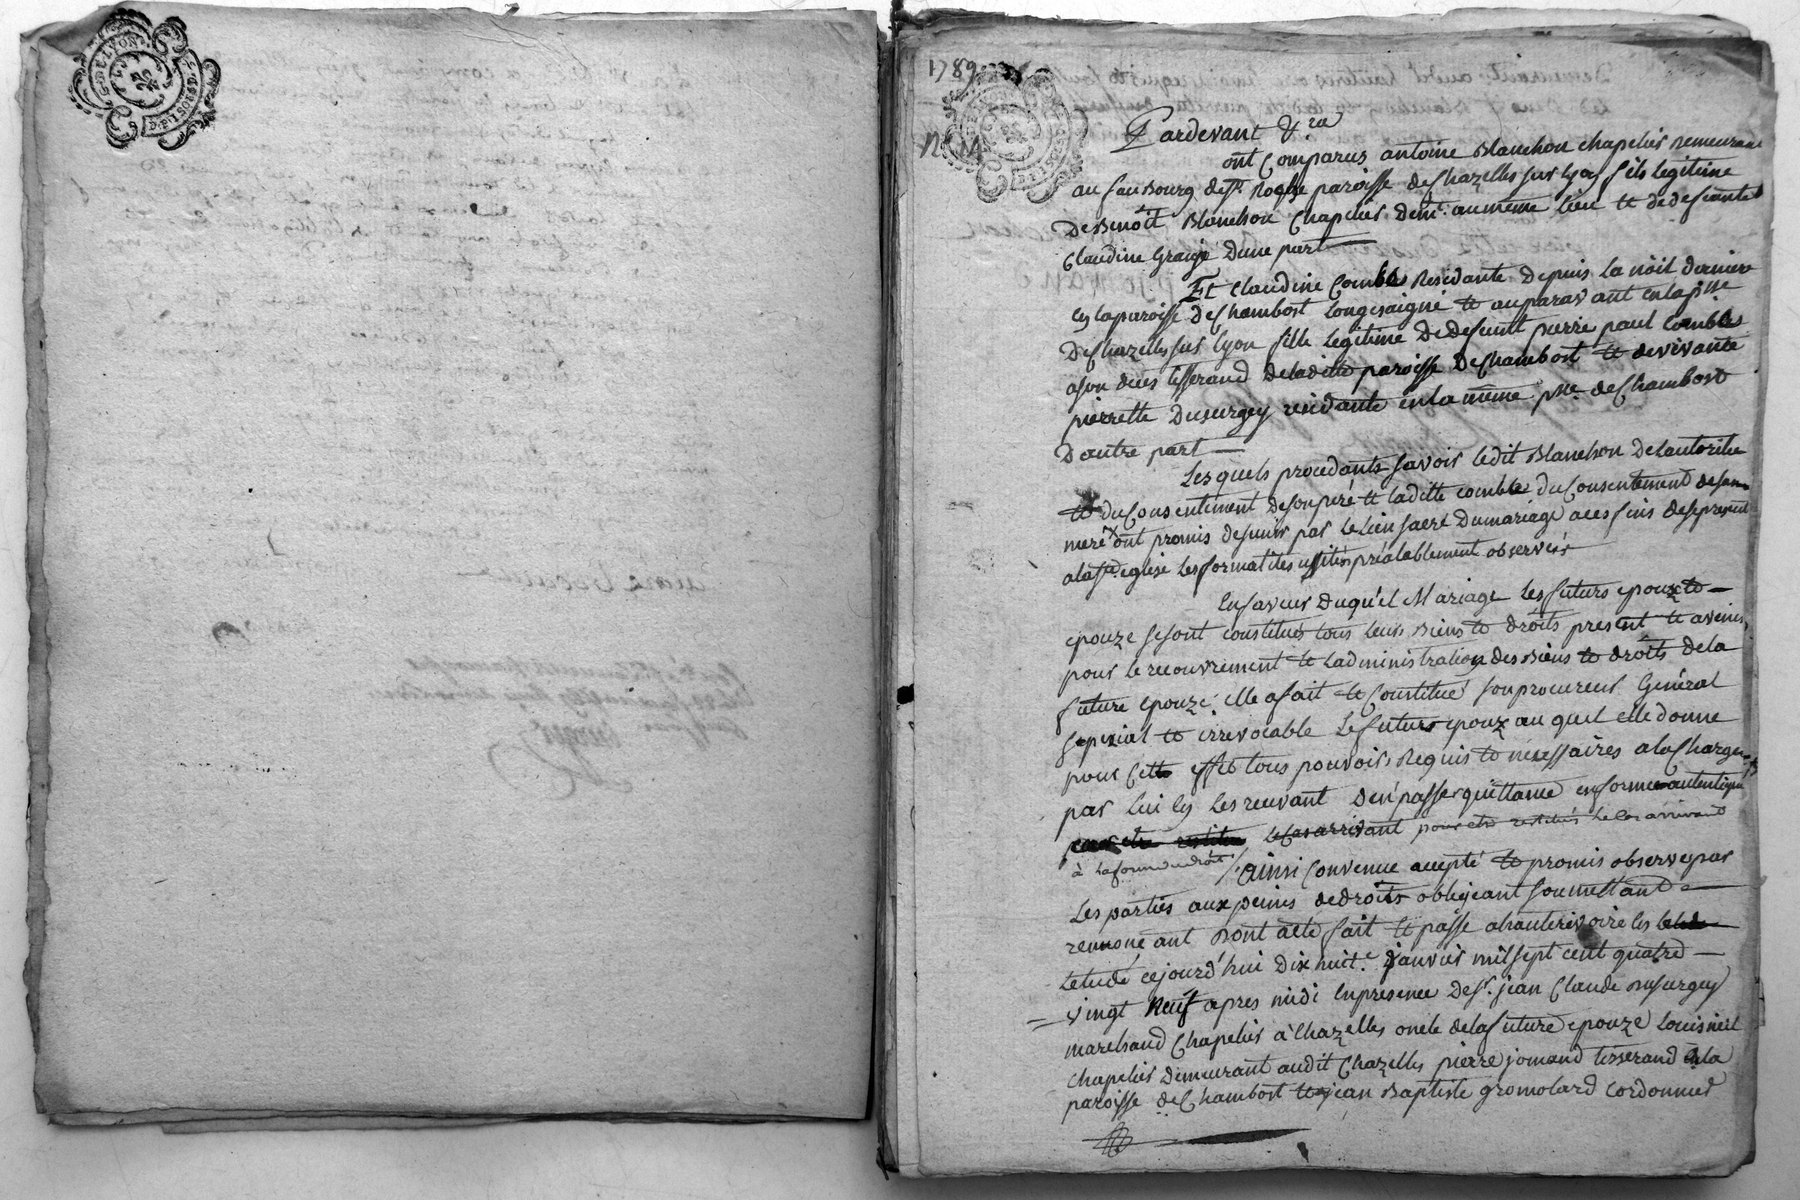 1789
Pardevant &.ra
ont Comparus antoine Blanchon chapelier Demeurant
au fauBourg de st. Roche paroisse de chazelles sur lyon fils legitime
De Benôit Blanchon Chapelier demt. au même lieu et de defeunte
Claudine Grange Dune part
Et claudine Comble Residante Depuis La nöil derniere
En la paroisse de Chambost Longesaigne et auparavant en la psse
De Chazelles sur lyon fille Legitime De defeunt pierre paul Comble
a son deces tisserand de la ditte paroisse De Chambost et de vivante
pierrette Dusurgey residante en la même psse. de Chambost
D'autre part
Les quels procedants savoir ledit Blanchon De lautorité
et du Consentement de son peré et laditte comble du Consentement de sa
meré ont promis de sunir par Le Lien sacré Du mariage a ces fins de se presenter
a la ste. eglise les formalités ussités préalablement observéés
En faveur Duquél Mariage Les futurs epoux et
epouze se sont constitués tous leurs Biens et droits present et avenir,
pour le recouvrement et Ladministration des Biens et droits de la
future epouze, elle a fait et Constitué son procureur Général
spezial et irrevocable Le futur epoux au quel elle donne
pour Cette effet tous pouvoirs Requis et nécessaires a la Charge
par Lui En Les recuvant D'en passer quittance en forme autentique
pour etre restitué le cas arrivant pour etre restitués le cas arrivant
à la forme du droit / ainsi Convenue accepté et promis observer par
Les parties aux peines de droits obligeant soumettant
renoncant Dont acte fait et passé a hauterivoire En
Letude cejourd'hui Dix huit.e Janvier mil sept cent quatre
vingt Neuf apres midi En presence de sr. jean Claude Dusurgey
marchand Chapelier à Chazelles oncle de la future epouze Louis
chapelier Demeurant audit Chazelles pierre jomand tisserand En la
paroisse de Chambost et jean Baptiste gromolard cordonnier